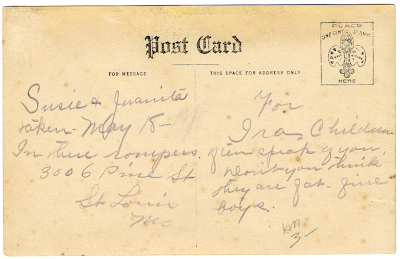 Post Card
PLACE
ONE CENT STAMP
HERE
FOR MESSAGE
THIS SPACE FOR ADDRESS ONLY
Susie & Juanita
taken May 18 -
In there rompers.
3006 Pine St
St Louis
Mo
For
Ira, Children
often speak of you,
don't you think
they are fat - fine
boys.